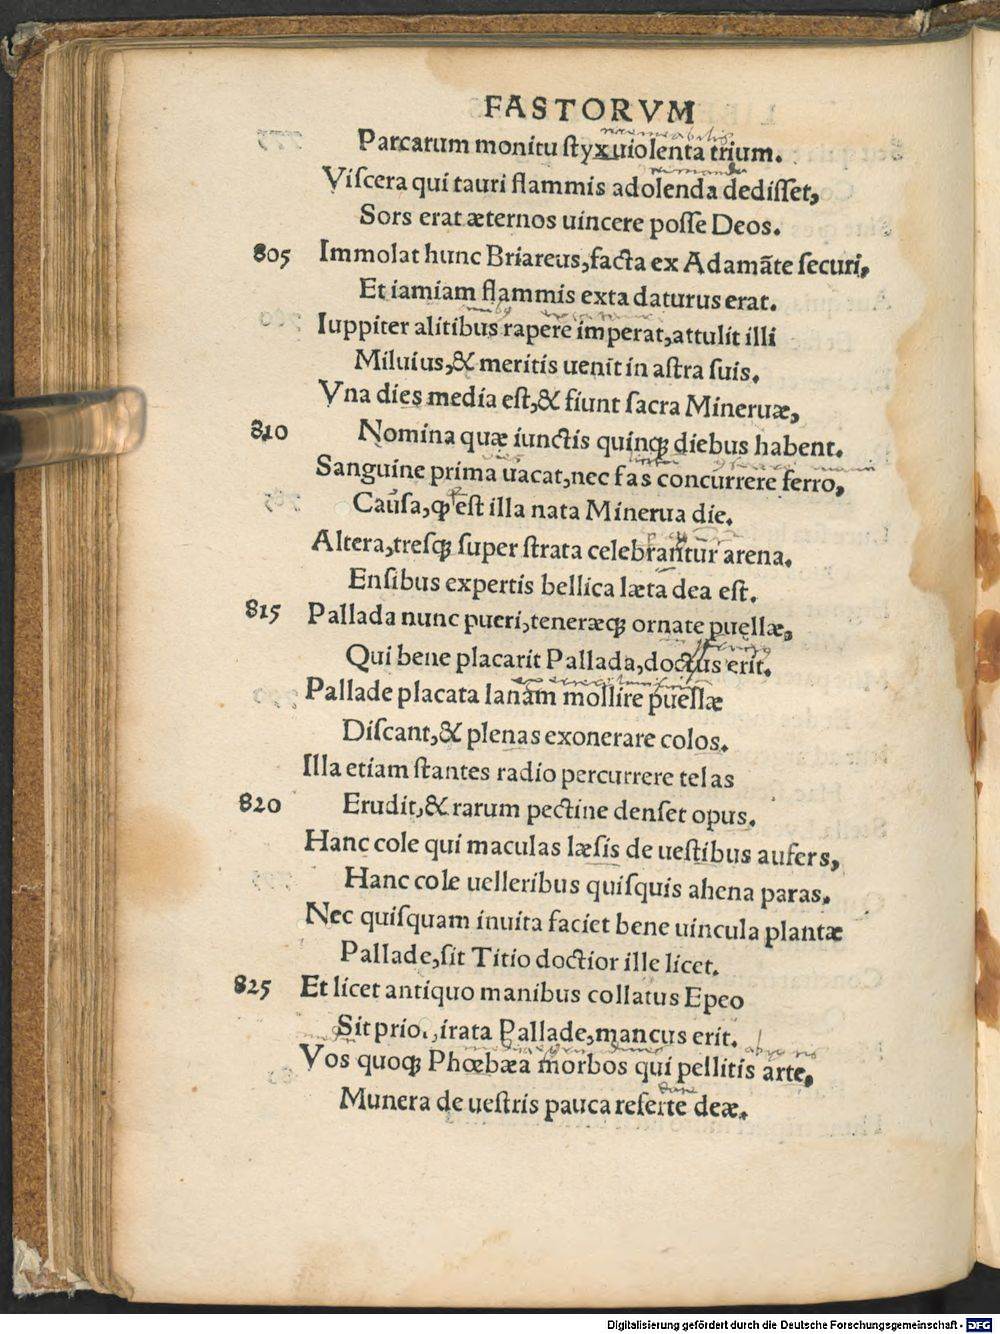 FASTORVM
Parcarum monitu styx uiolenta trium.
Viscera qui tauri flammis adolenda dedisset,
Sors erat æternos uincere posse Deos.
805 Immolat hunc Briareus, facta ex Adamãte securi,
Et iamiam flammis exta daturus erat.
Iuppiter alitibus rapere imperat, attulit illi
Miluius, & meritis uenit in astra suis.
Vna dies media est, & fiunt sacra Mineruæ,
810 Nomina quæ iunctis quinqꝫ diebus habent.
dies
Sanguine prima uacat, nec fas concurrere ferro,
Causa, ꝙ est illa nata Minerua die.
Altera, tresqꝫ super strata celebrantur arena.
Ensibus expertis bellica læta dea est.
815 Pallada nunc pueri, teneræqꝫ ornate puellæ,
Qui bene placarit Pallada, doctus erit.
Pallade placata lanam mollire puellæ
Discant, & plenas exonerare colos.
Illa etiam stantes radio percurrere telas
820 Erudit, & rarum pectine denset opus.
Hanc cole qui maculas læsis de uestibus aufers,
Hanc cole uelleribus quisquis ahena paras.
Nec quisquam inuita faciet bene uincula plantæ
Pallade, sit Titio doctior ille licet.
825 Et licet antiquo manibus collatus Epeo
Sit prior, irata Pallade, mancus erit.
Vos quoqꝫ Phœbæa morbos qui pellitis arte,
Munera de uestris pauca referte deæ.
Digitalisierung gefördert durch die Deutsche Forschungsgemeinschaft - DFG